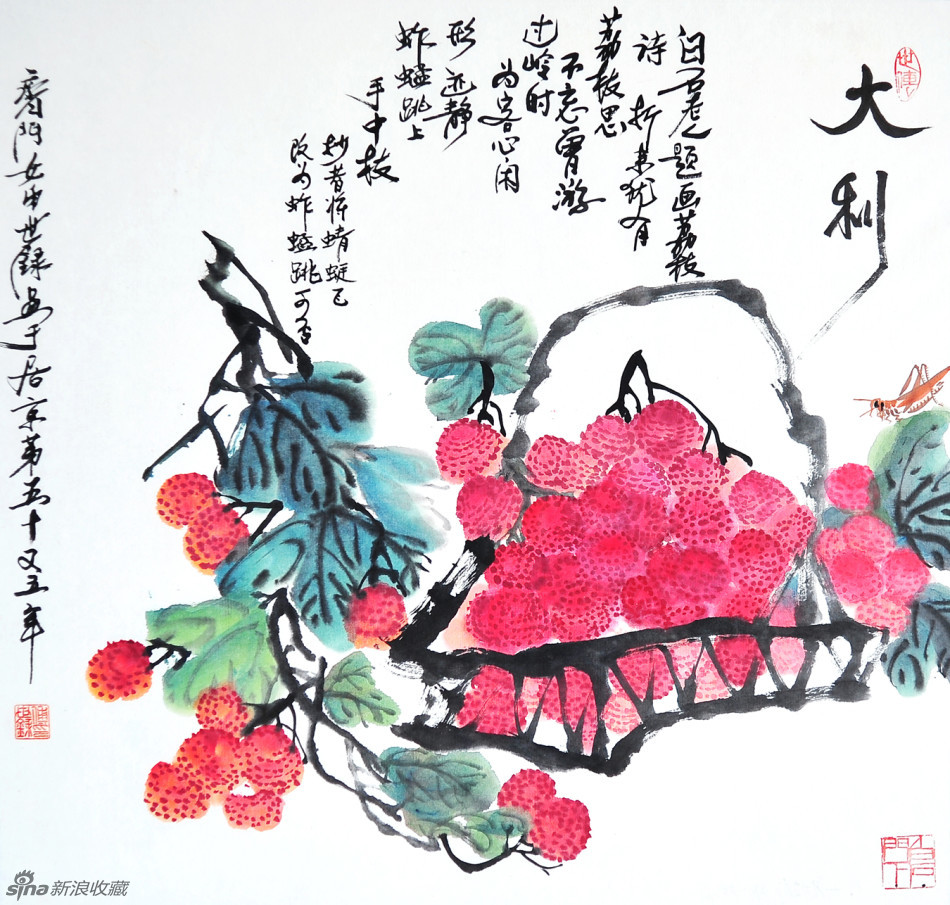 大利
白石老人题画荔枝
诗 折来犹有
荔枝思
不忘曾游
过岭时
为客心闲
形迹静
蚱蜢跳上
手中枝
抄昔作蜻蜓已
改为蚱蜢跳可否
齐门女 世 画于居京第五十又五年
sina新浪收藏